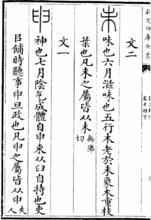 欽定四庫全書
文二
未 味也六月滋味也五行木老於未象木重枝
葉也凡未之屬皆从未 無沸切
文一
申 神也七月陰气成體自申束从臼自持也吏
㠯餔時聽事申旦政也凡申之屬皆从申 失人